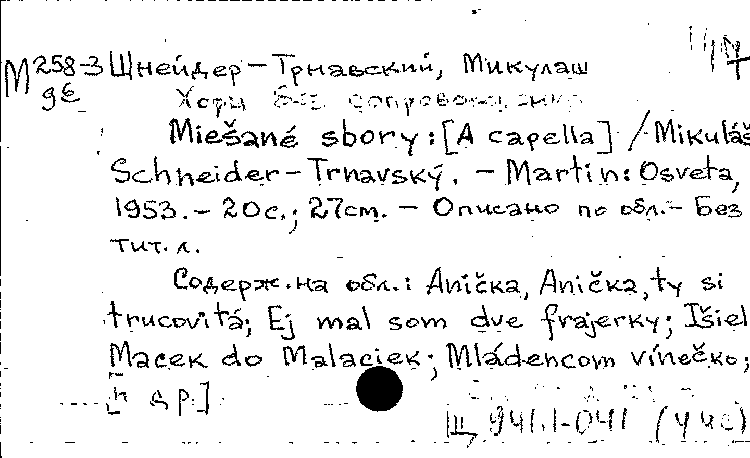 М 258-3 Шнейдер-Трнавский, Микулаш
96 Хоры без сопровожд.
Miešané sbory: [A capella] / Mikuláš
Schneider-Trnavský. - Martin: Osveta,
1953. - 20 с.; 27 см. - Описано по обл. - Без
тит. л.
Содерж. на обл.: Anička, Anička, ty si
trucovitá; Ej mal som dve frajerky; Išiel
Macek do Malaciek; Mládencom vínečko;
[и др.]
Щ 941.1-041